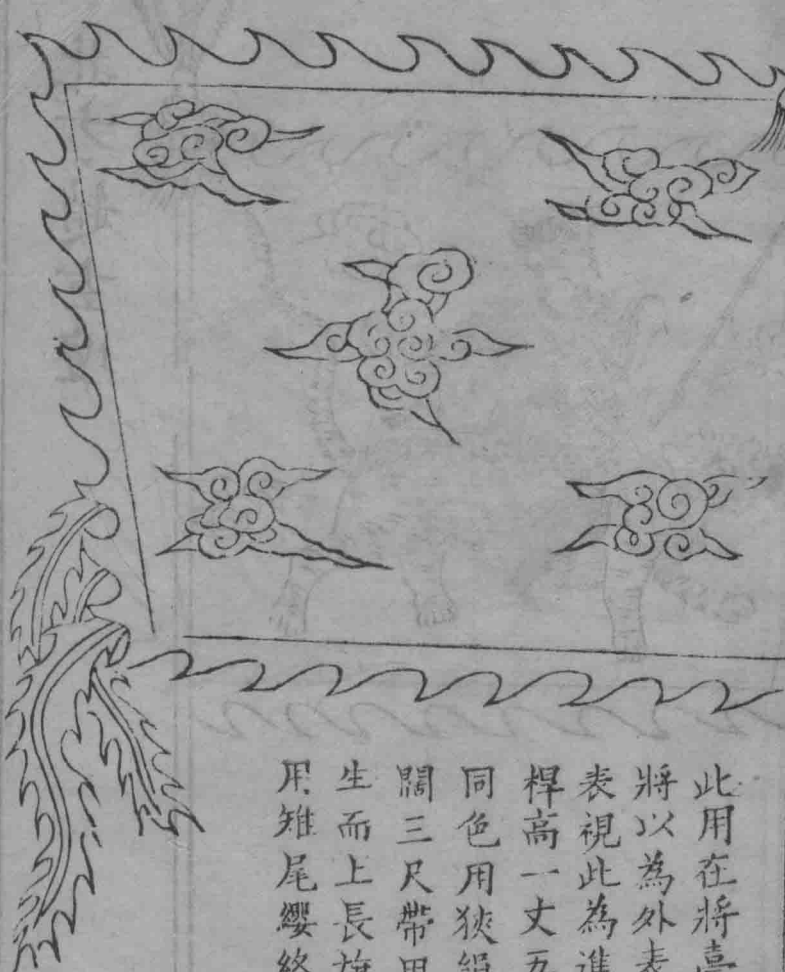 此用在將臺
將以為外表
表視此為進
桿高一丈五
同色用狹絹
闊三尺帶用
生而上長旂
用雉尾纓絡